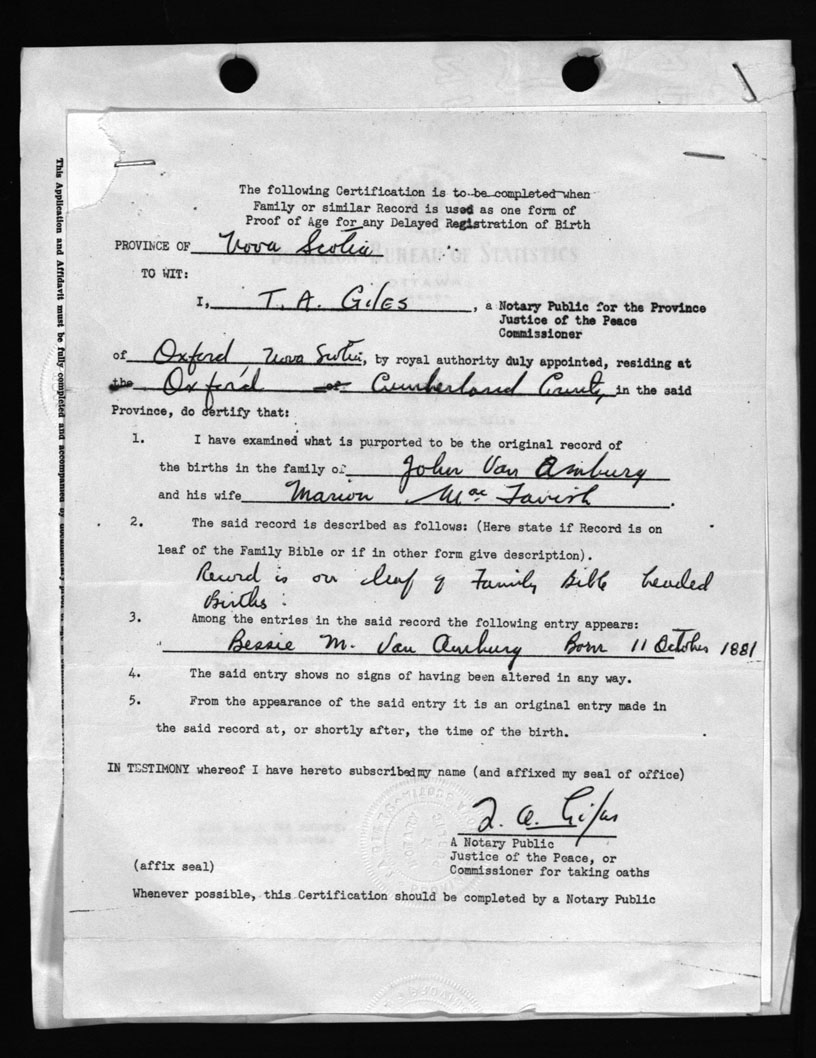 The following Certification is to be completed when
Family or similar Record is used as one form of
Proof of Age for any Delayed Registration of Birth
PROVINCE OF Nova Scotia
TO WIT:
I, T. A. Giles, a Notary Public for the Province
Justice of the Peace
Commissioner
of Oxford Nova Scotia, by royal authority duly appointed, residing at
the Oxford or Cumberland County, in the said
Province, do certify that:
1. I have examined what is purported to be the original record of
the births in the family of John Van Amburg
and his wife Marion Mac Tavish.
2. The said record is described as follows: (Here state if Record is on
leaf of the Family Bible or if in other form give description).
Record is on leaf of Family Bible headed
Births.
3. Among the entries in the said record the following entry appears:
Bessie M. Van Amburg Born 11 October 1881
4. The said entry shows no signs of having been altered in any way.
5. From the appearance of the said entry it is an original entry made in
the said record at, or shortly after, the time of the birth.
IN TESTIMONY whereof I have hereto subscribed my name (and affixed my seal of office)
T. A. Giles
A Notary Public
Justice of the Peace, or
(affix seal) Commissioner for taking oaths
Whenever possible, this Certification should be completed by a Notary Public
This Application and Affidavit must be fully completed and accompanied by documentary proof